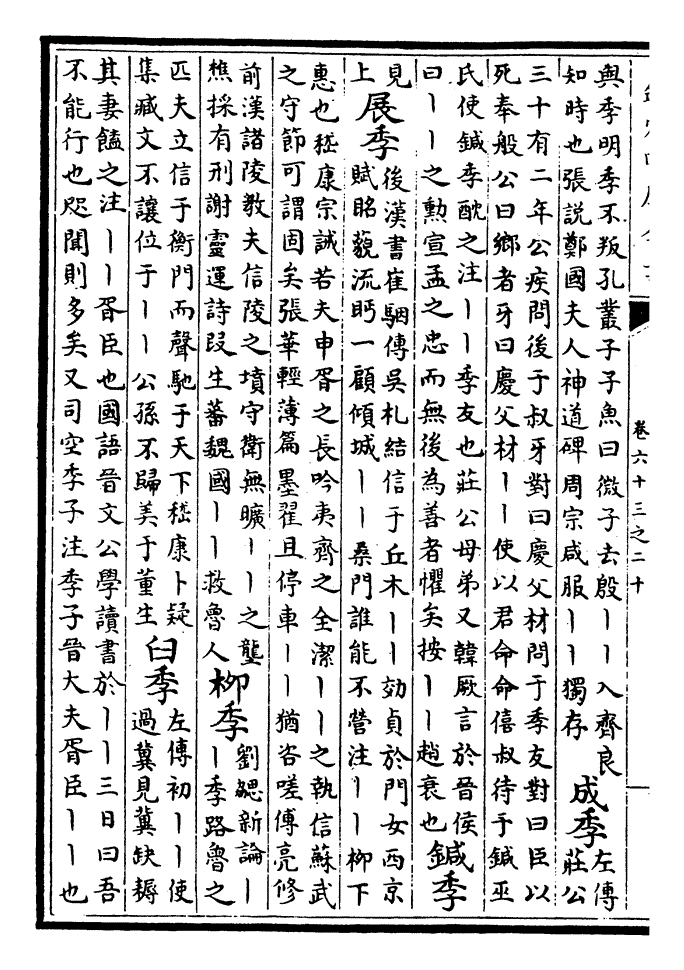 卷六十三之二十
與季明季不叛孔叢子子魚曰微子去殷丨丨入齊良
知時也張說鄭國夫人神道碑周宗咸服丨丨獨存
成季
左傳
莊公
三十有二年公疾問後于叔牙對曰慶父材問于季友對曰臣以
死奉般公曰鄉者牙曰慶父材丨丨使以君命命僖叔待于鍼巫
氏使鍼季酖之注丨丨季友也莊公母弟又韓厥言於晉侯
曰丨丨之勲宣孟之忠而無後為善者懼矣按丨丨趙衰也
鍼季
見
上
展季
後漢書崔駰傳吳札結信于丘木丨丨効貞於門女西京
賦眳藐流眄一顧傾城丨丨桑門誰能不營注丨丨柳下
惠也嵇康宗誡若夫申胥之長吟夷齊之全潔丨丨之執信蘇武
之守節可謂固矣張華輕薄篇墨翟且停車丨丨猶咨嗟傅亮修
前漢諸陵教夫信陵之墳守衛無曠丨丨之壟
樵採有刑謝靈運詩叚生蕃魏國丨丨救魯人
柳季
劉勰新論丨
丨季路魯之
匹夫立信于衡門而聲馳于天下嵇康卜疑
集臧文不讓位于丨丨公孫不歸美于董生
臼季
左傳初丨丨使
過冀見冀缺耨
其妻饁之注丨丨胥臣也國語晉文公學讀書於丨丨三日曰吾
不能行也咫聞則多矣又司空季子注季子晉大夫胥臣丨丨也